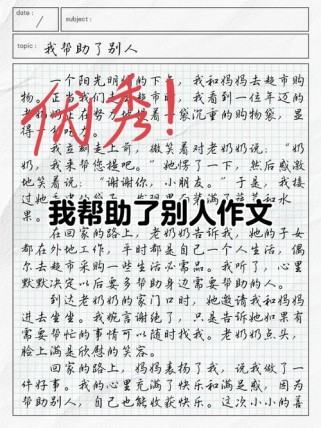 date: /
subject:
topic: 我帮助了别人
一个阳光明媚的下午，我和妈妈去超市购
物。正当我们 超市时，我看到一位年迈的
老奶奶正在努力地 着一袋沉重的购物袋，显
得
优秀！
我立刻走上前，微笑着对老奶奶说：“奶
奶，我来帮您提吧。”她愣了一下，然后感激
地笑着说：“谢谢你，小朋友。”于是，我接
过她 水
我帮助了别人作文
果。
在回家的路上，老奶奶告诉我，她的子女
都在外地工作，平时都是自己一个人生活，偶
尔去超市采购一些生活必需品。我听了，心里
默默决定以后要多帮助身边需要帮助的人。
到达老奶奶的家门口时，她邀请我和妈妈
进去坐坐。我婉言谢绝了，只是告诉她如果有
需要帮忙的事情可以随时找我。老奶奶点头，
脸上满是欣慰的笑容。
回家的路上，妈妈表扬了我，说我做了一
件好事。我的心里充满了快乐和满足感，因为
帮助别人，自己也能收获快乐。这次小小的善